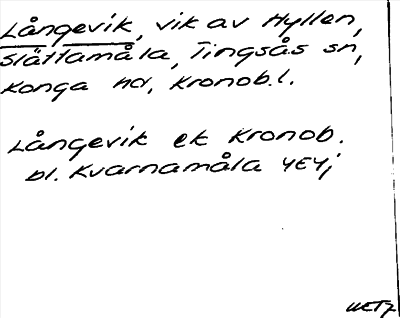 Långevik, vik av Hyllen,
Slättamåla, Tingsås sn,
Konga hd, Kronob.l.
Långevik ek Kronob.
bl. Kvarnamåla 4E4j